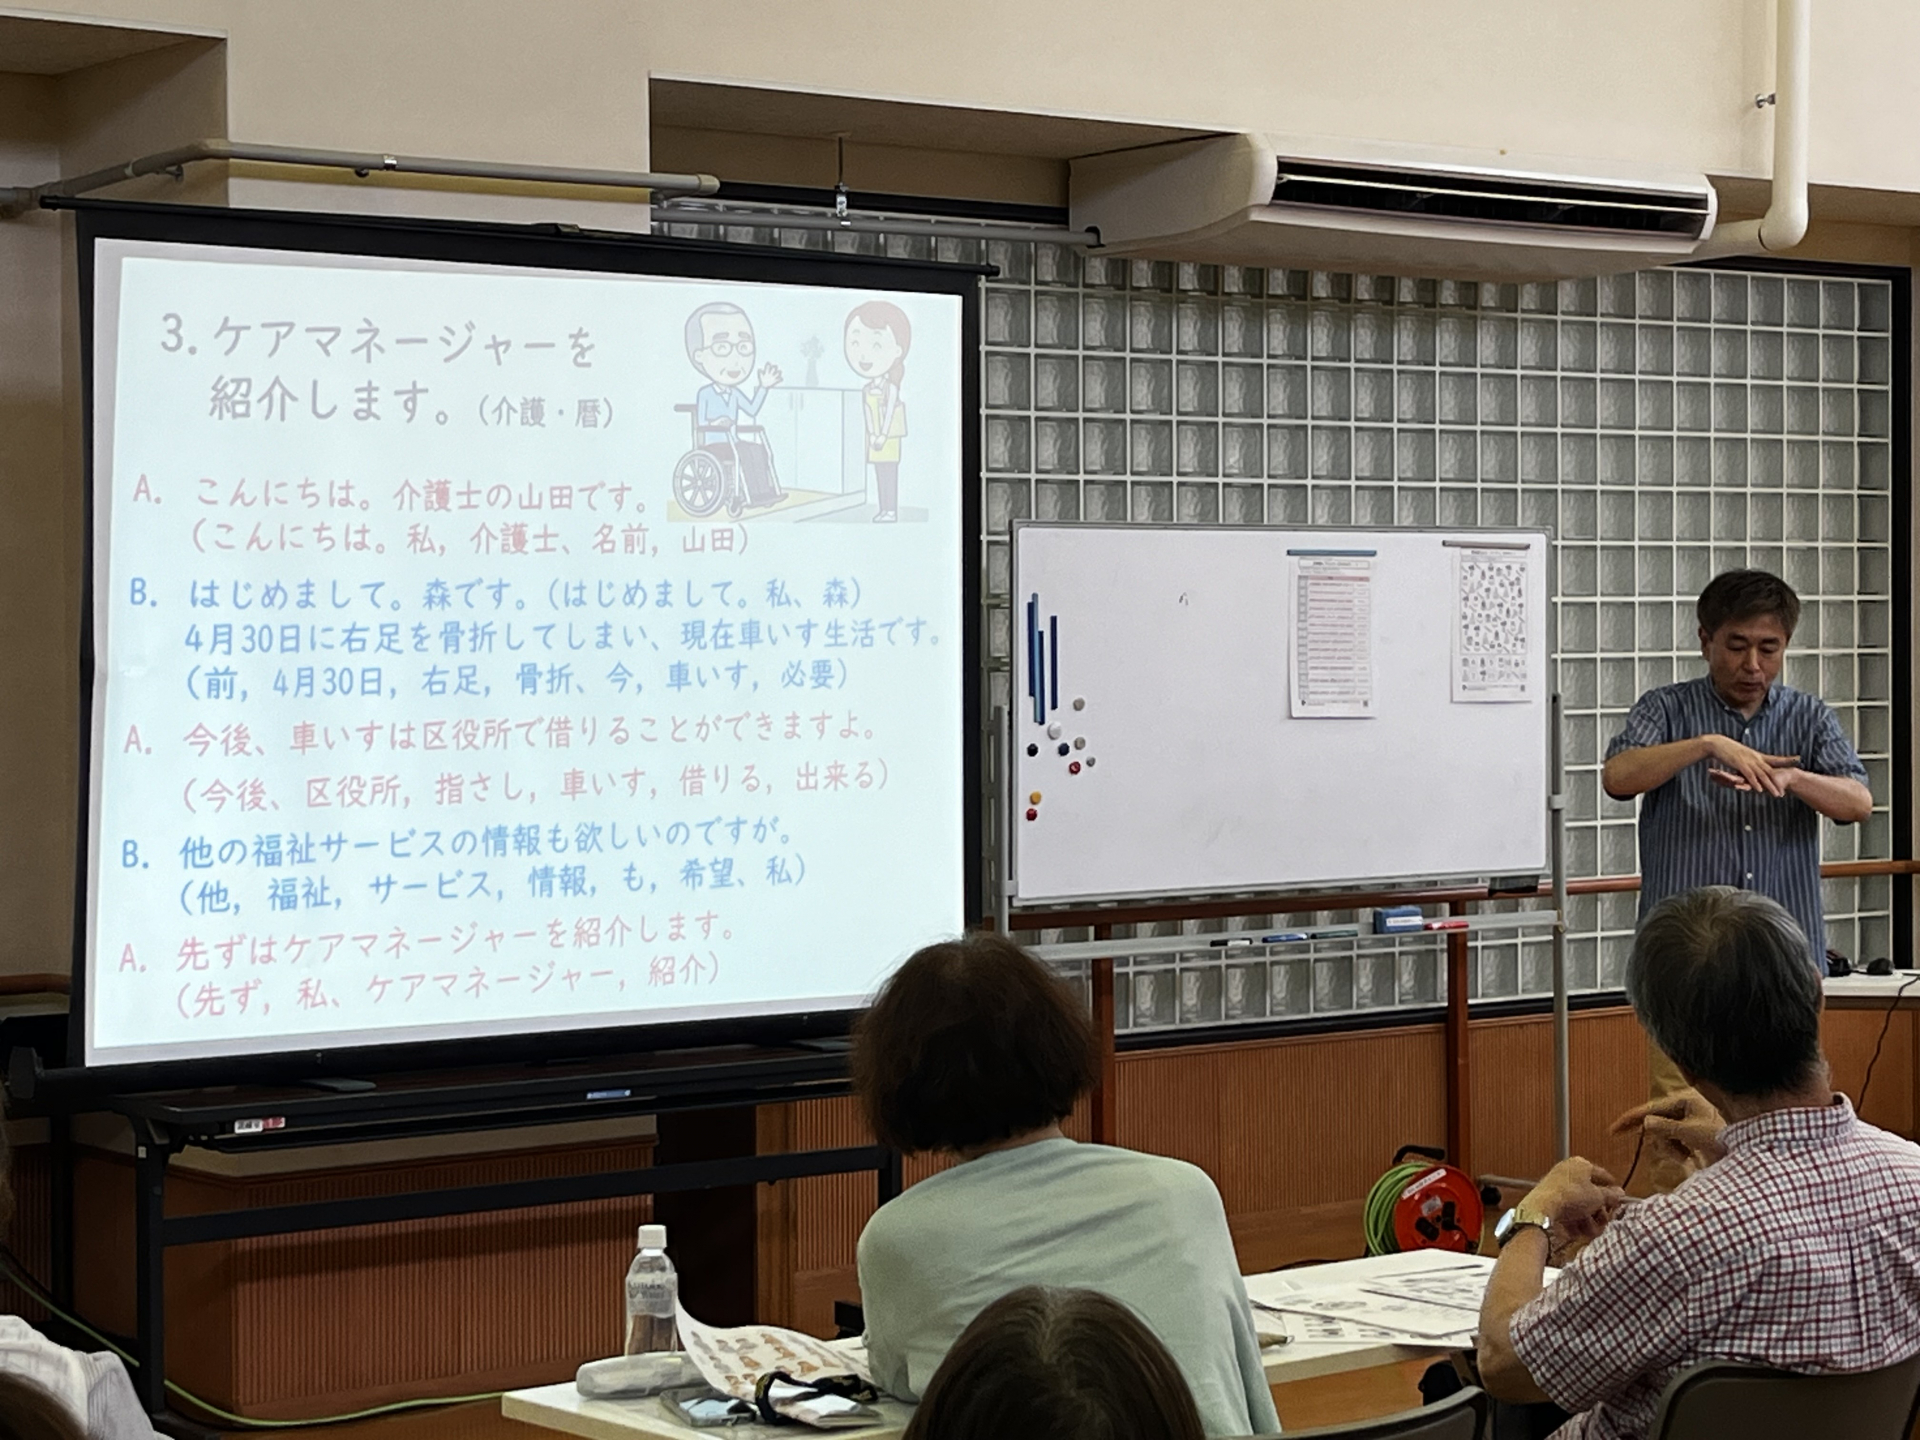 3. ケアマネージャーを
紹介します。（介護・暦）
A. こんにちは。介護士の山田です。
（こんにちは。私，介護士、名前，山田）
B. はじめまして。森です。（はじめまして。私、森）
4月30日に右足を骨折してしまい、現在車いす生活です。
（前，4月30日，右足，骨折、今，車いす，必要）
A. 今後、車いすは区役所で借りることができますよ。
（今後、区役所，指さし，車いす，借りる，出来る）
B. 他の福祉サービスの情報も欲しいのですが。
（他，福祉，サービス，情報，も，希望、私）
A. 先ずはケアマネージャーを紹介します。
（先ず，私、ケアマネージャー，紹介）